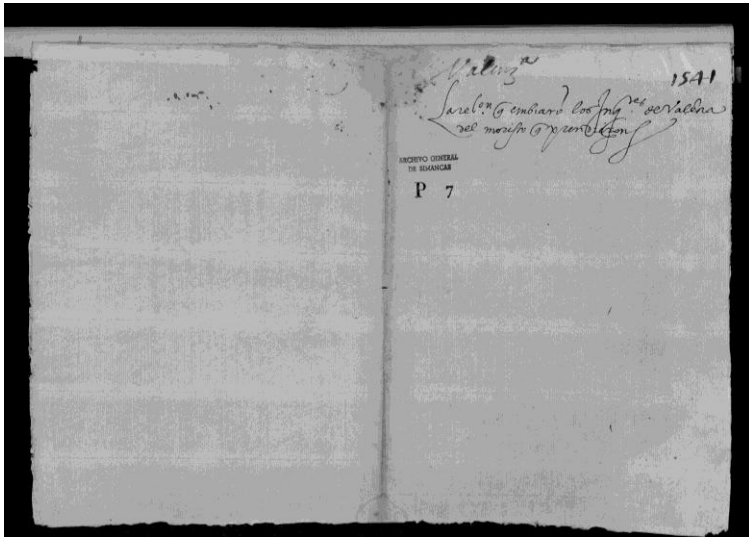 Valenzª
1541
La relon q embiarō los Inqres de Valēcia
del morisco q prendieron
ARCHIVO GENERAL
DE SIMANCAS
P 7